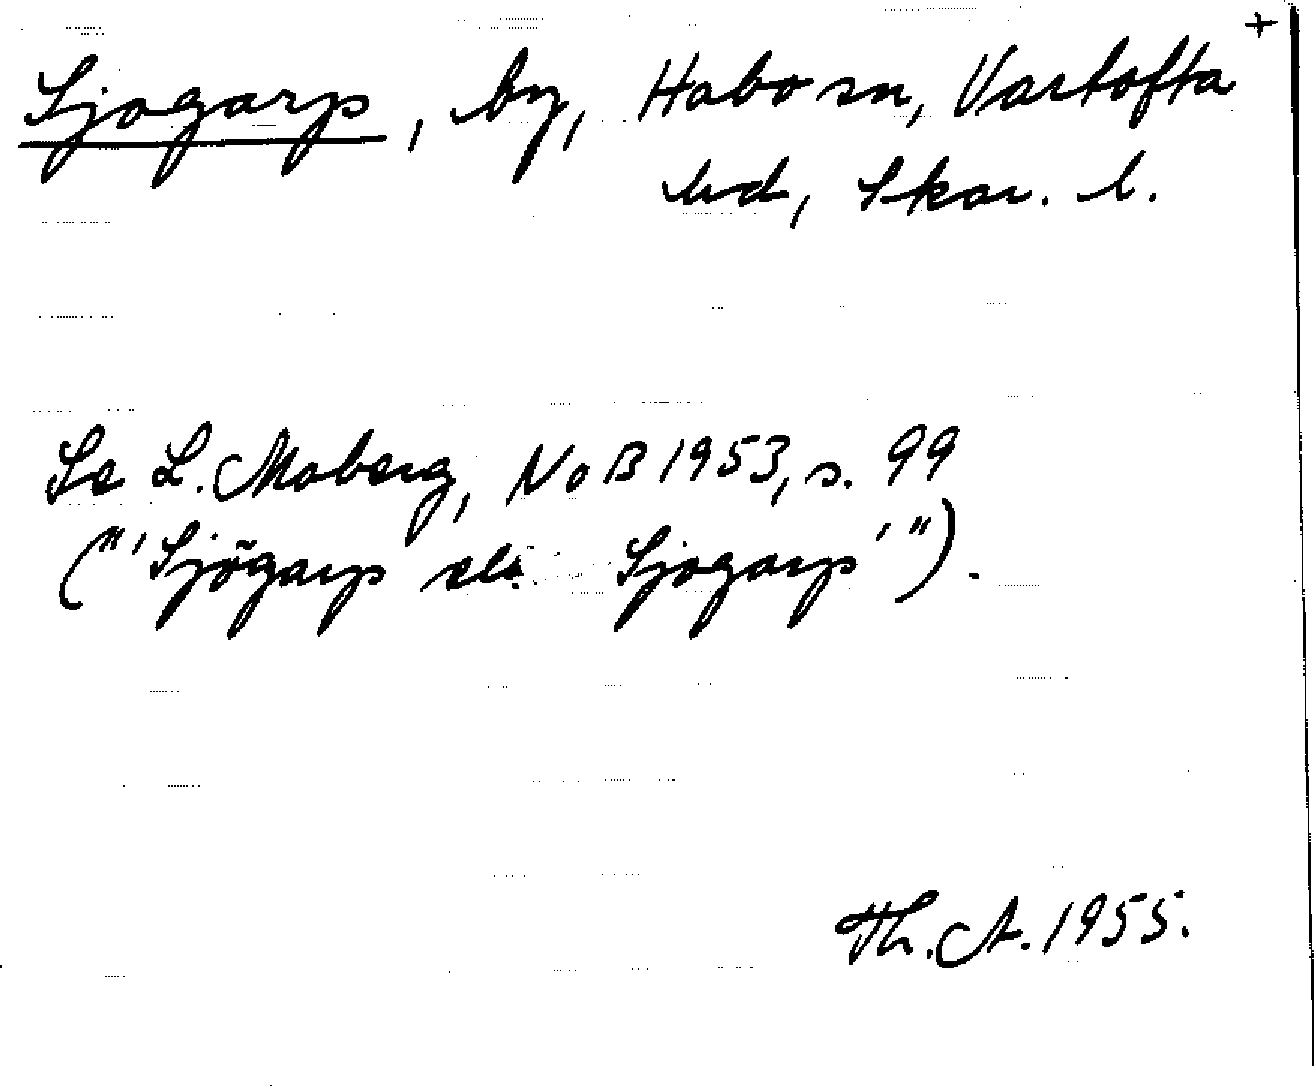 +
Sjogarp, by, Habo sn, Vartofta
hd, Skar. l.
Se L. Moberg, NoB 1953, s. 99
("'Sjögarp el. Sjogarp'").
Th. A. 1955.